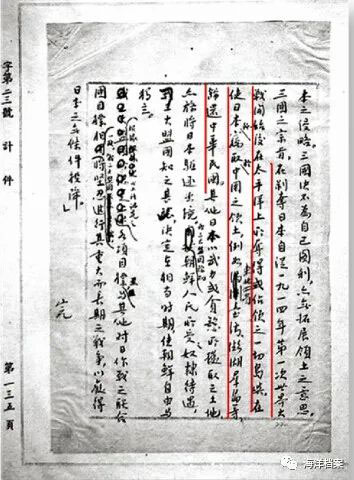 本之侵略。三國決不為自己圖利,亦無拓展領土之意思。
三國之宗旨,在剝奪日本自從一九一四年第一次世界大
戰開始後在太平洋上所奪得或佔領之一切島嶼,在
使日本竊取中國之領土,例如東北四省台灣澎湖羣島等
歸還中華民國。其他日本以武力或貪慾所攫取之土地
亦務將日本驅逐出境;朝鮮人民所受奴隸待遇
大盟國知之甚 決定在相當時期使朝鮮自由與
獨立。
各項目標並與其他對日作戰之聯合
國目標相 堅忍進行其重大而長期之戰爭,以獲得
日本之無條件投降。」
完
字第二三號 計 件
第一三五頁
海洋档案